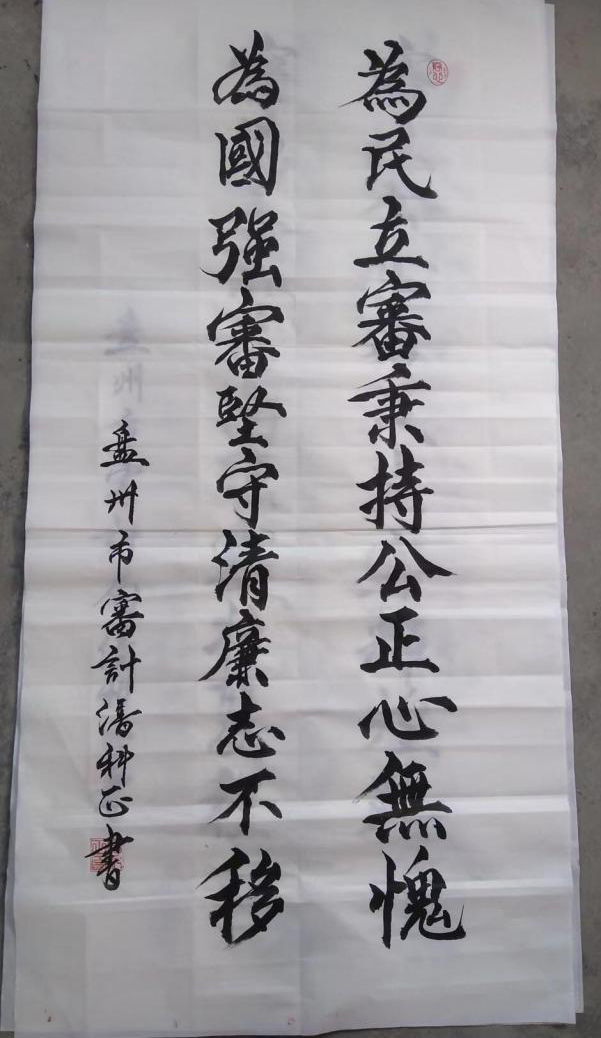 為民立審秉持公正心無愧
為國強審堅守清廉志不移
盘州市審計潘科正書